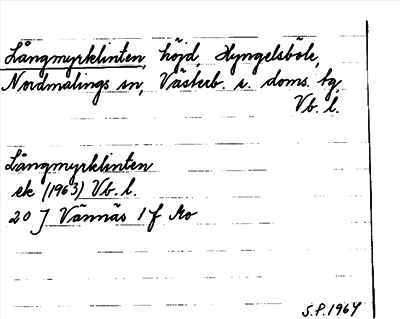 Långmyrklinten, höjd, Hyngelsböle,
Nordmalings sn, Västerb. s. doms. tg,
Vb. l.
Långmyrklinten
ek (1963) Vb. l.
20 J Vännäs 1 f Mo
S.P. 1964